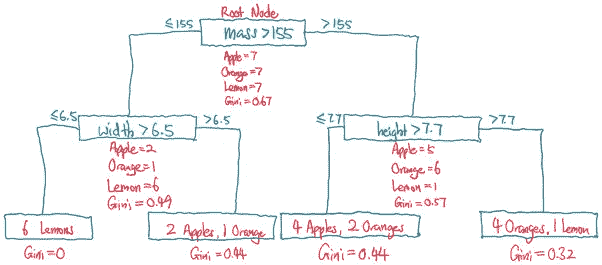 Root Node
≤155
mass > 155
>155
Apple = 7
Orange = 7
Lemon = 7
Gini = 0.67
≤6.5
width > 6.5
>6.5
Apple = 2
Orange = 1
Lemon = 6
Gini = 0.49
≤7.7
height > 7.7
>7.7
Apple = 5
Orange = 6
Lemon = 1
Gini = 0.57
6 Lemons
Gini = 0
2 Apples, 1 Orange
Gini = 0.44
4 Apples, 2 Oranges
Gini = 0.44
4 Oranges, 1 Lemon
Gini = 0.32